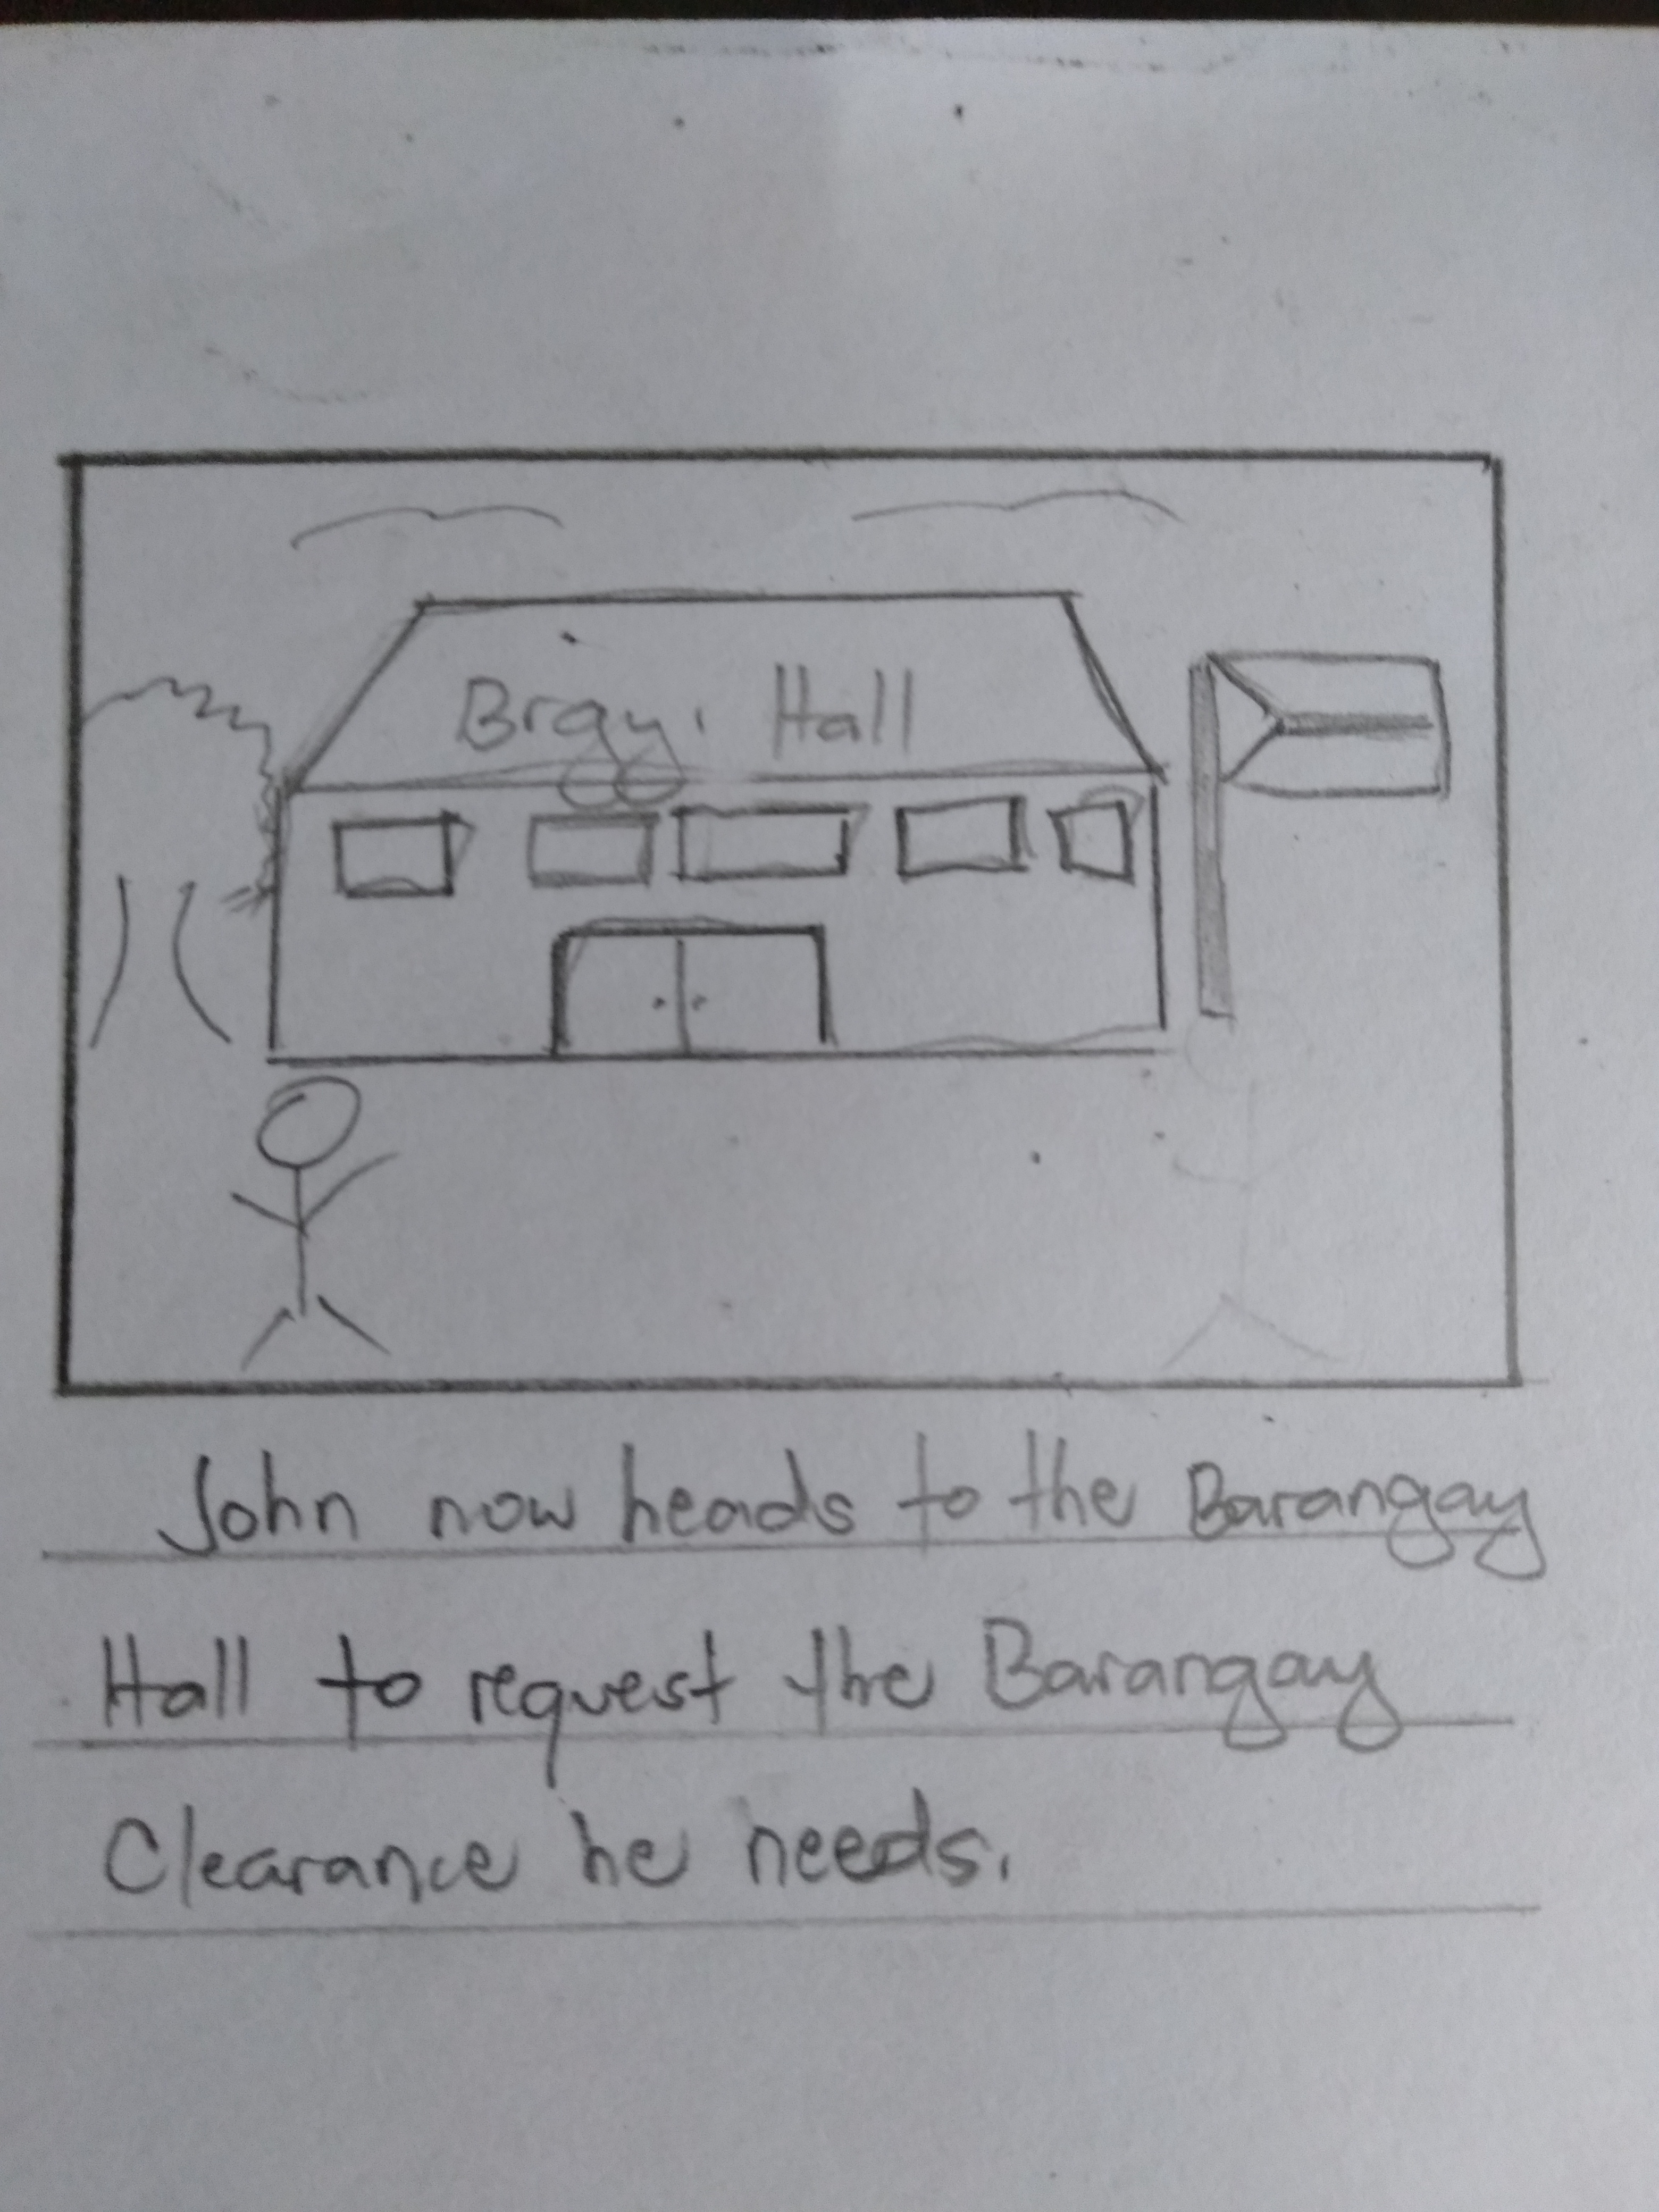 Brgy. Hall
John now heads to the Barangay
Hall to request the Barangay
Clearance he needs.